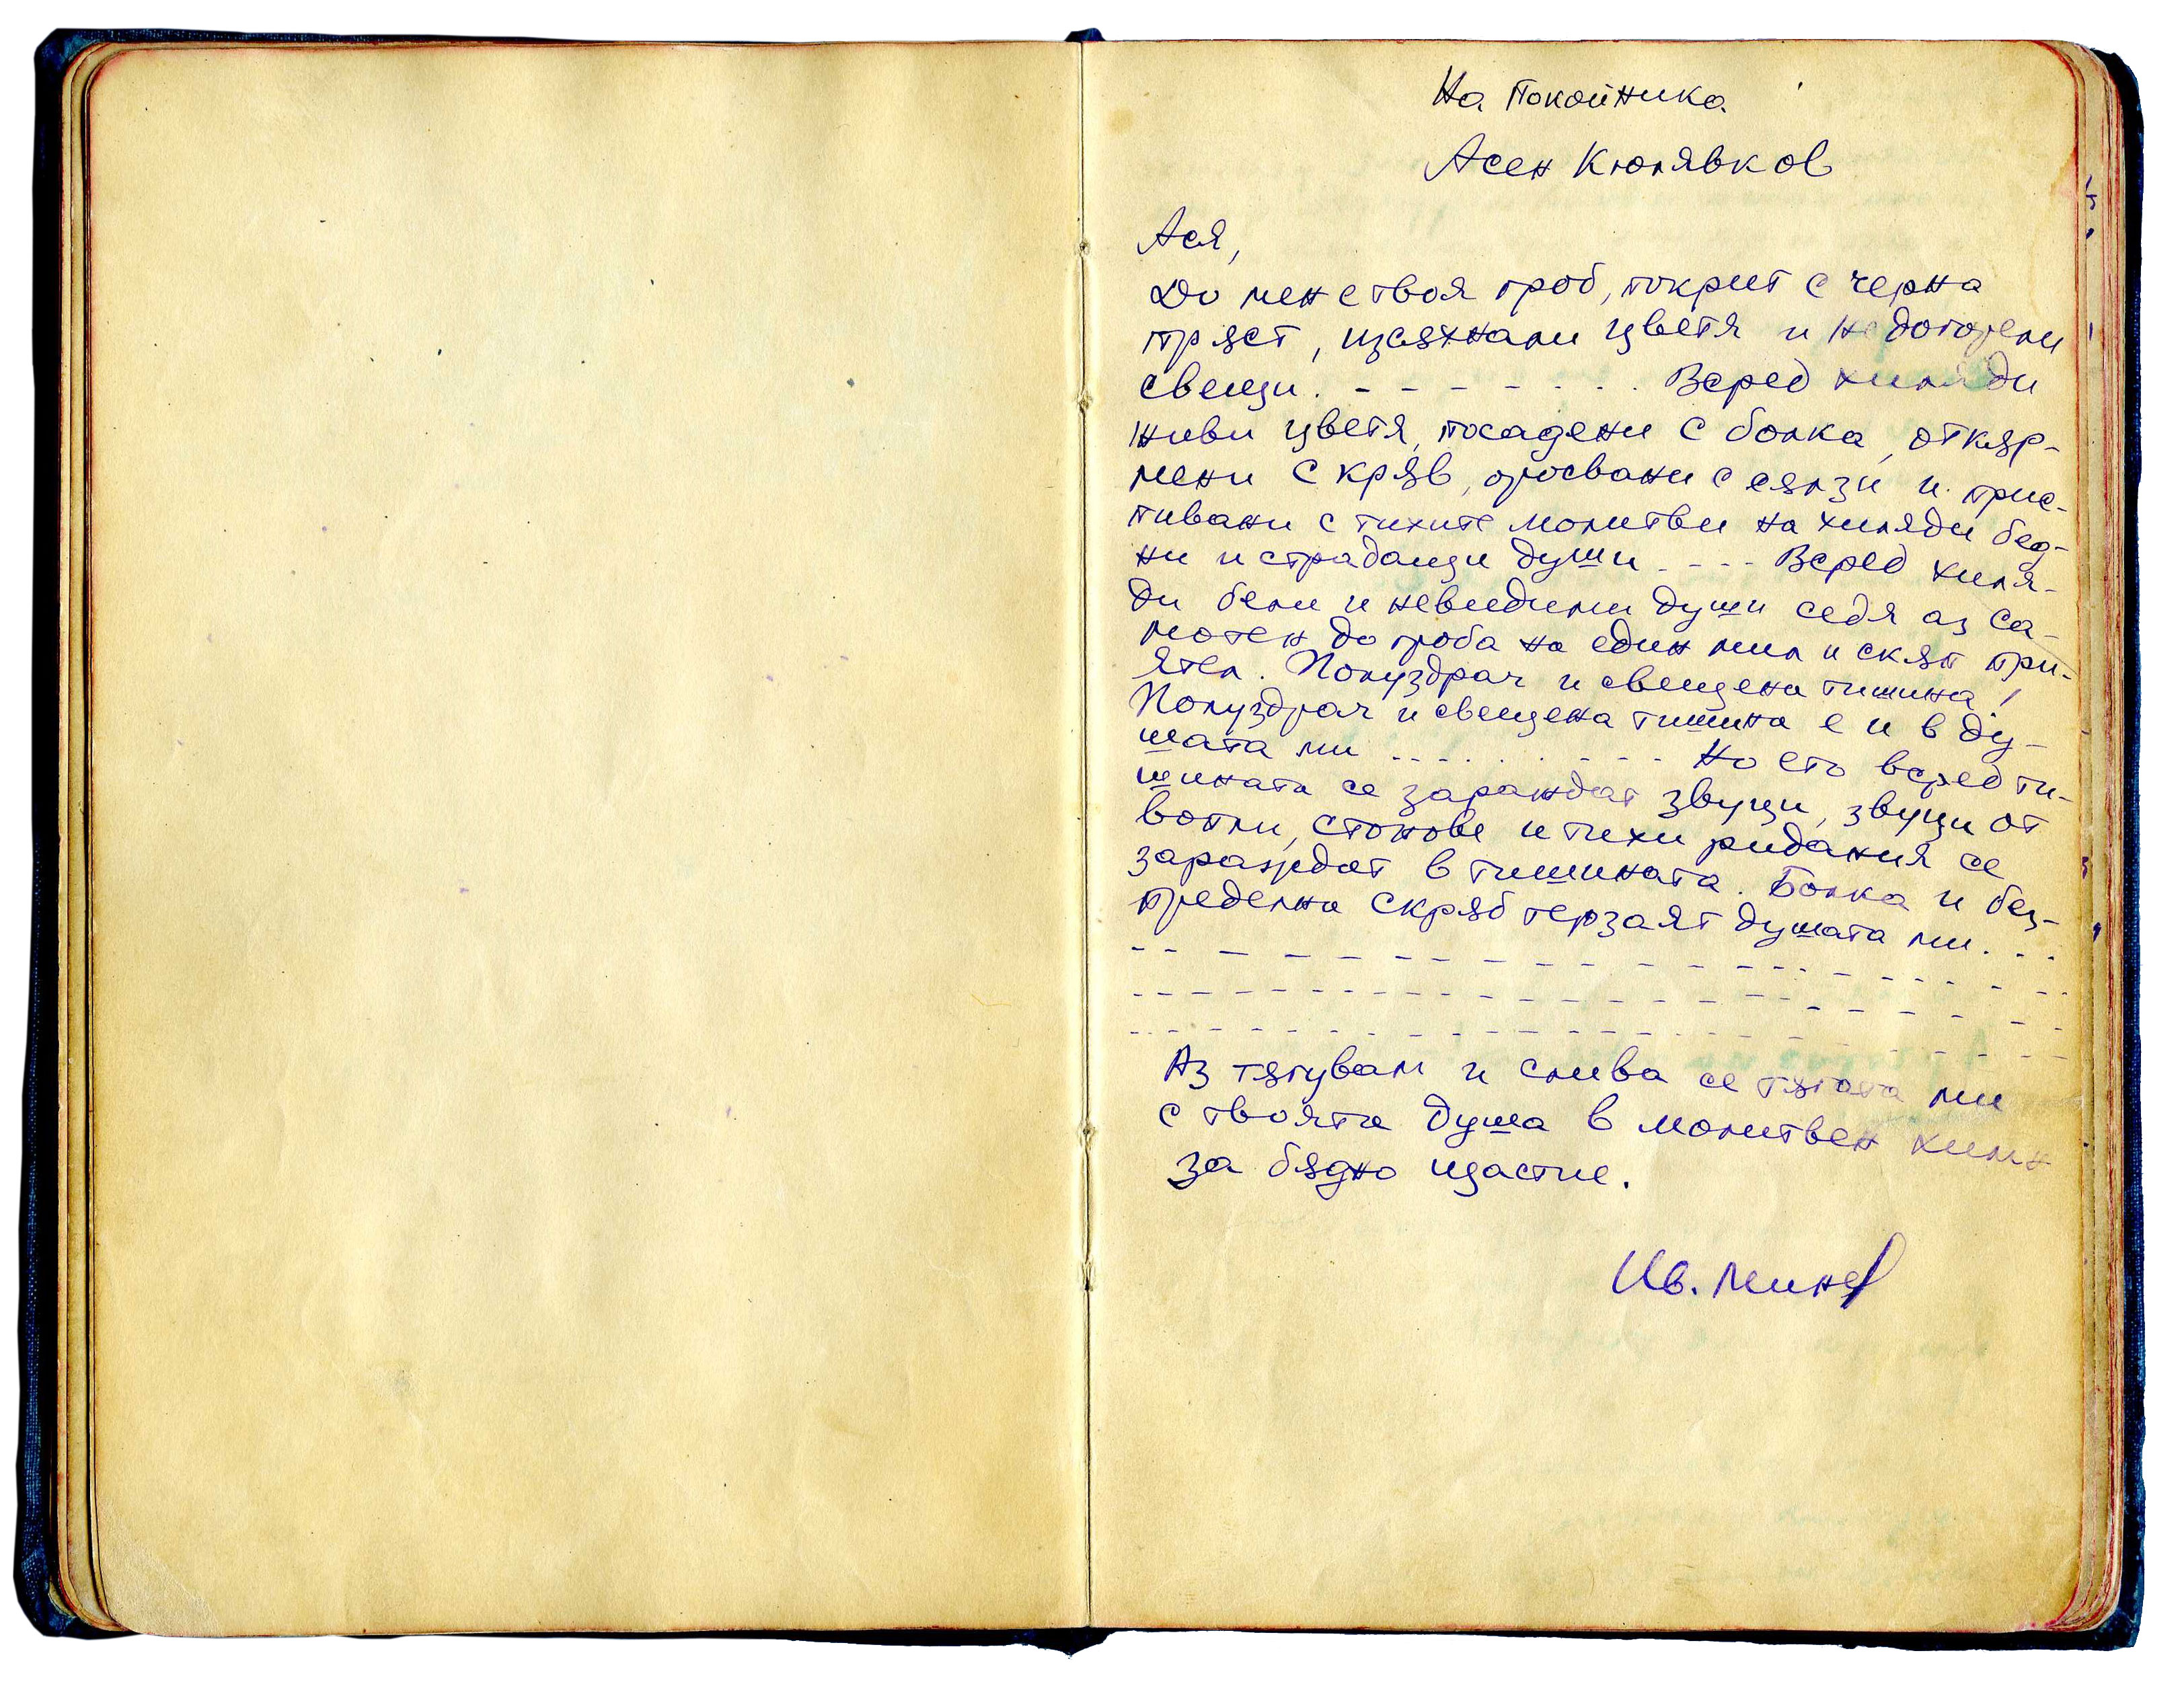 На Покойника
Асен Кюлявков
Ася,
До мен е твоя гроб, покрит с черна
пръст, изсъхнали цветя и недогорели
свещи. - - - - - . . . Всред хиляди
живи цветя, посадени с болка, откър-
мени с кръв, оросвани с сълзи и прис-
пивани с тихите молитви на хиляди бед-
ни и страдащи души - - - - Всред хиля-
ди бели и невидими души седя аз са-
мотен до гроба на един мил и скъп при-
ятел. Полуздрач и свещена тишина!
Полуздрач и свещена тишина е и в ду-
шата ми . . . . . . . - - - - Но ето всред ти-
шината се зараждат звуци, звуци от
вопли, стонове и тихи ридания се
зараждат в тишината. Болка и без-
пределна скръб терзаят душата ми. . .
- - - - - - - - - - - - - - - - - - - - - - - -
- - - - - - - - - - - - - - - - - - - - - - - -
- - - - - - - - - - - - - - - - - - - - - - - -
Аз тъгувам и слива се тъгата ми
с твоята душа в молитвен химн
за бъдно щастие.
Ив. Минев